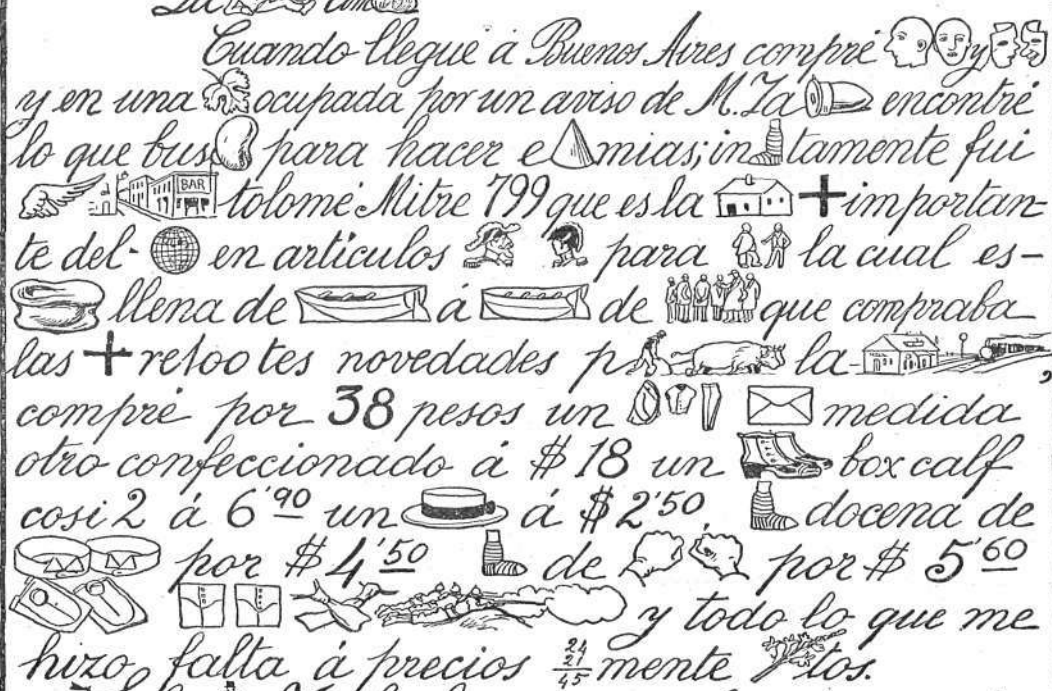 Cuando llegué á Buenos Aires compré y
y en una ocupada por un aviso de M. Za encontré
lo que bus para hacer e mias; in tamente fui
BAR tolomé Mitre 799 que es la + importan-
te del- en artículos para la cual es-
llena de á de que compraba
las + re100tes novedades p la-
compré por 38 pesos un medida
otro confeccionado á $ 18 un box calf
cosi2 á 6'90 un á $ 2'50 docena de
por $ 4'50 de por $ 5'60
y todo lo que me
hizo falta á precios 24 21 45 mente tos.